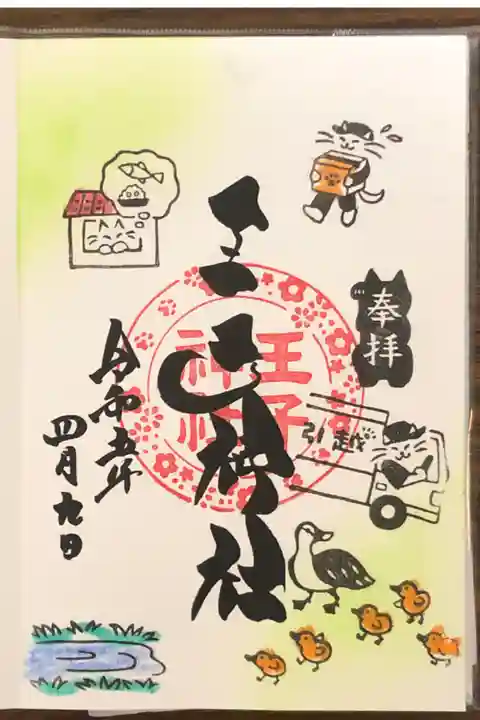 奉拝
王子神社
王子神社
引越
令和五年
四月九日